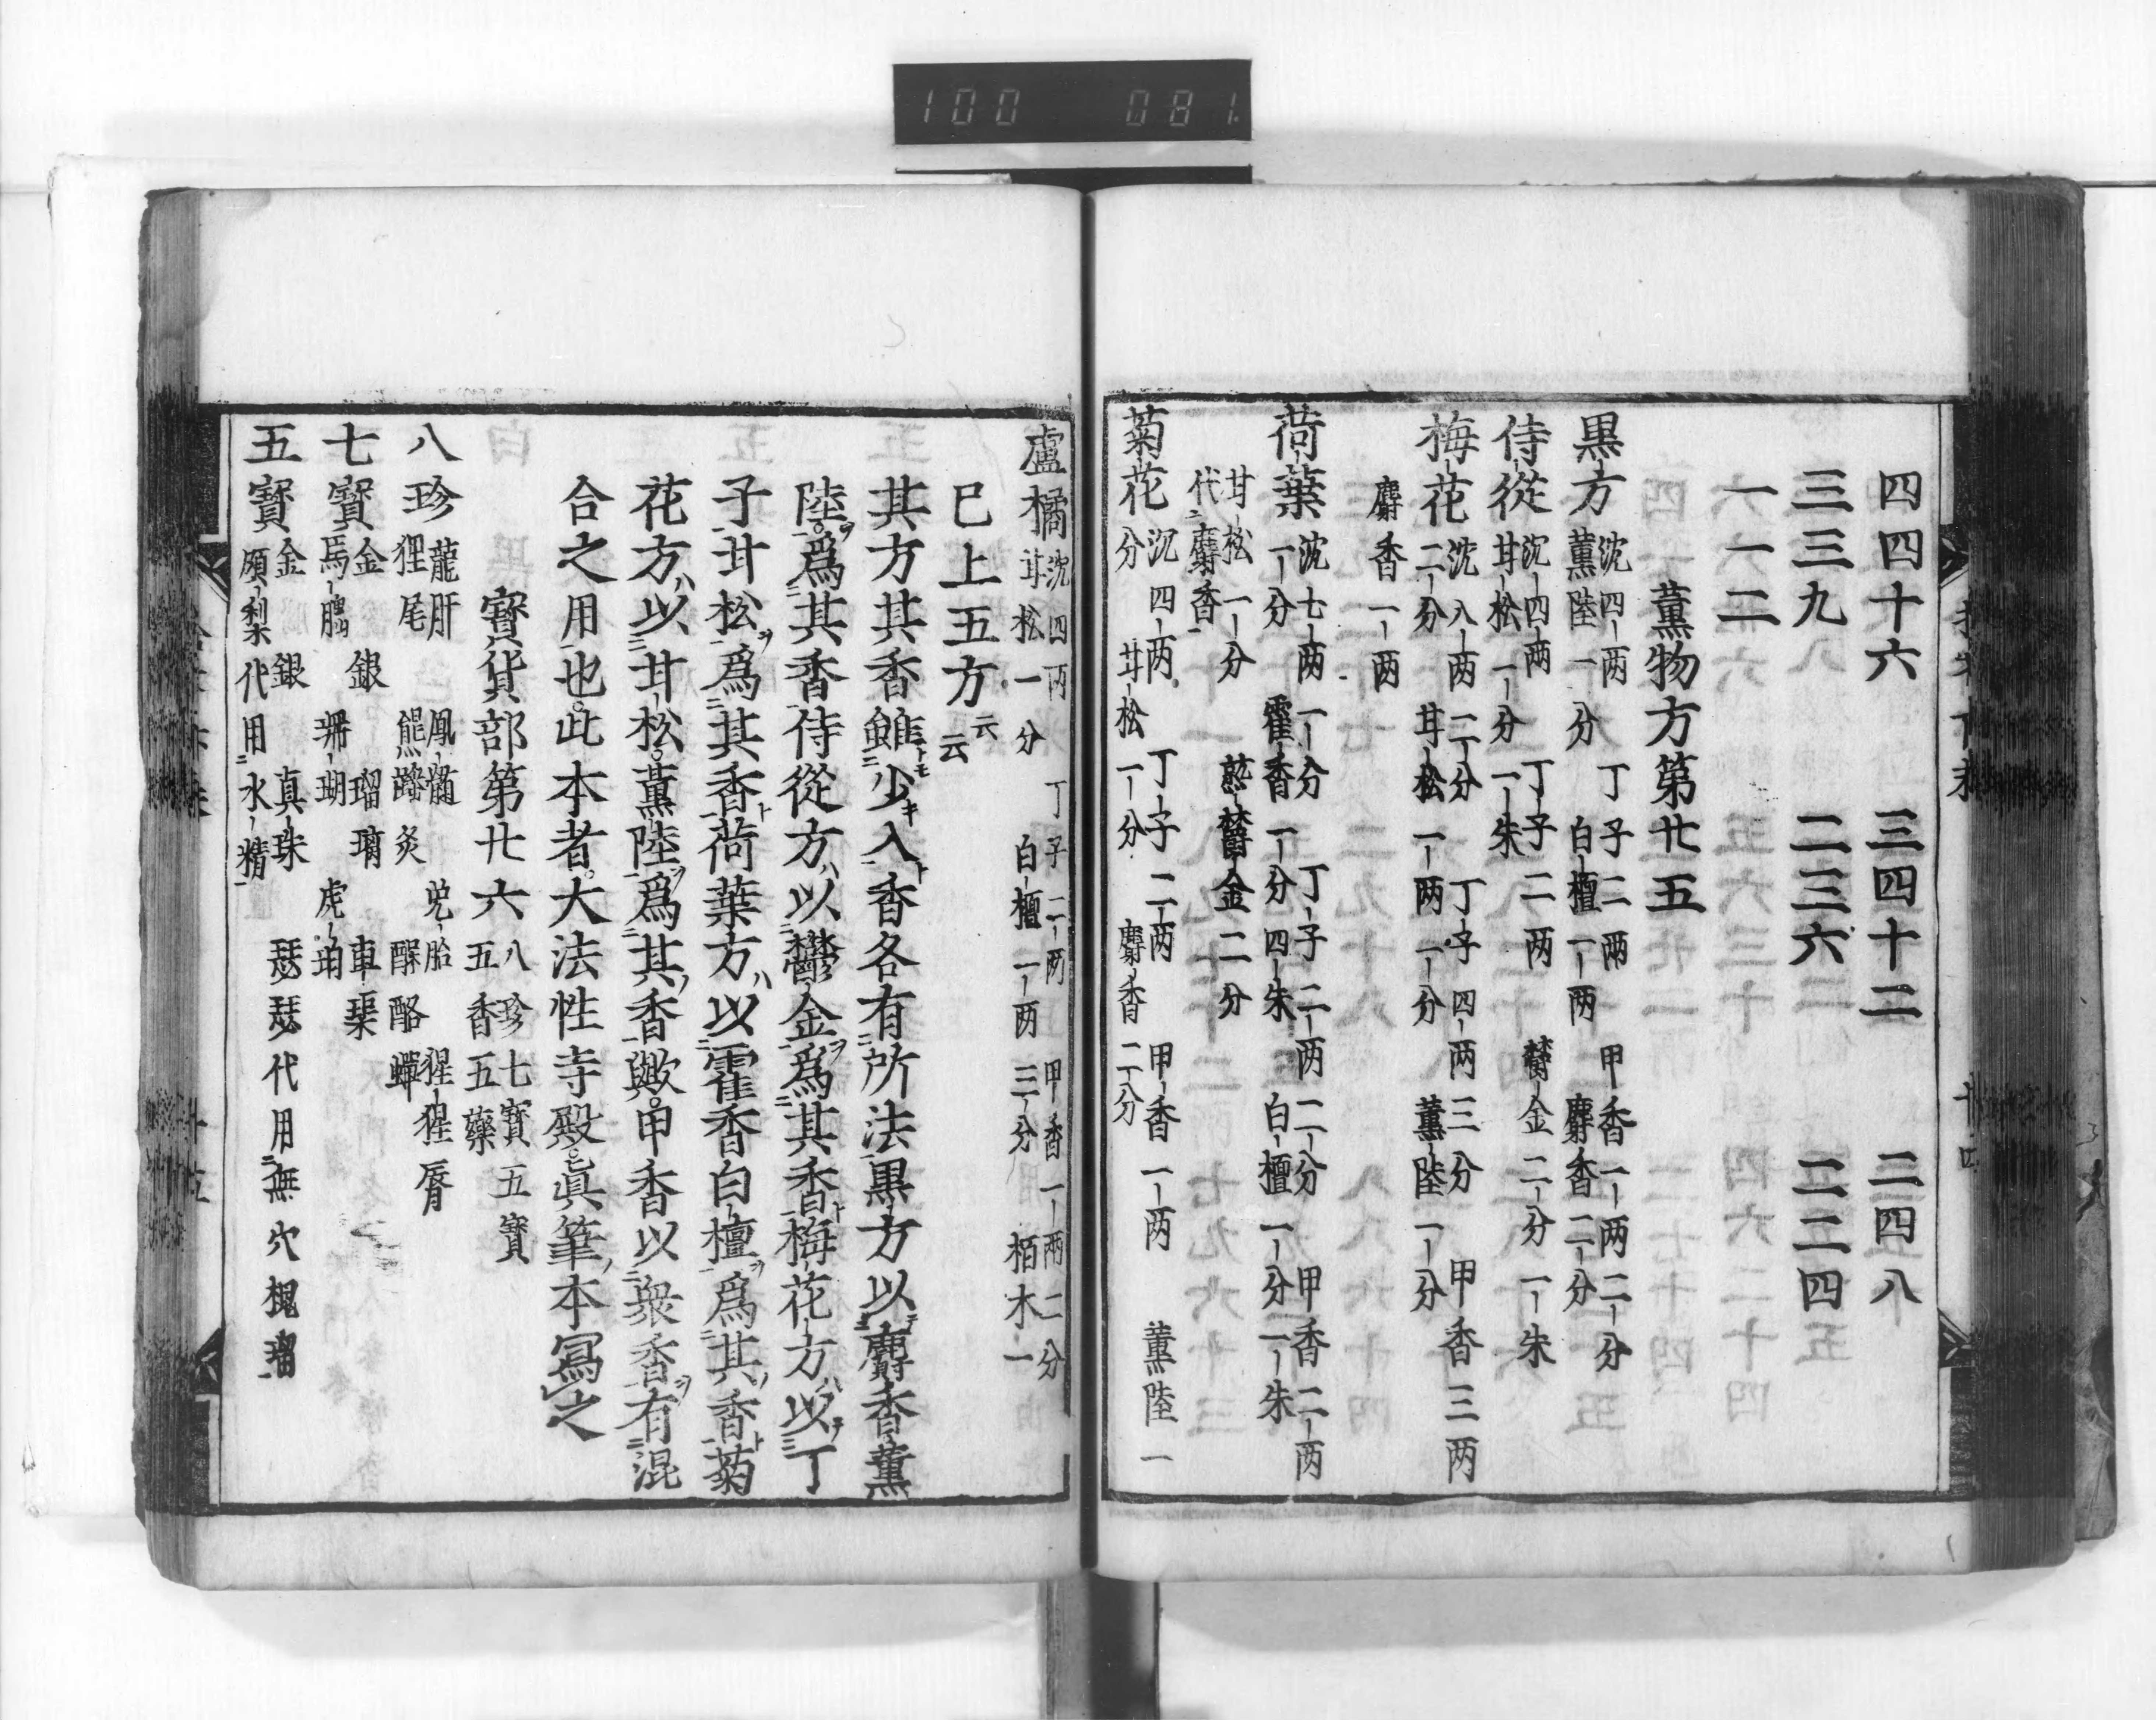 100 081
四四十六 三四十二 二四八
三三九 二三六 二二四
一一二
薫物方第廿五
黒方 沈四両 丁子二両 甲香一両二分
薫陸一分 白檀一両 麝香二分
侍從 沈四両 丁子二両 欝金二分一朱
甘松一分一朱
梅花 沈八両二分 丁子四両三分 甲香三両
二分 甘松一両一分 薫陸一分
麝香一両
荷葉 沈七両一分 丁子二両二分 甲香二両
一分 霍香一分四朱 白檀一分一朱
甘松一分 熟欝金二分
代麝香
菊花 沈四両 丁子二両 甲香一両 薫陸一
分 甘松一分 麝香二分
盧橘 沈四両 丁子二両 甲香一両二分
甘松一分 白檀一両三分 栢木一
已上五方云云
其方其香雖少入香各有所法黒方以麝香薫
陸爲其香侍從方ハ以鬱金爲其香梅花方ハ以丁
子甘松爲其香荷葉方ハ以霍香白檀爲其香菊
花方ハ以甘松薫陸爲其香歟甲香以衆香有混
合之用也此本者大法性寺殿眞筆本寫之
寳貨部第廿六 八珍七寳五寳
五香五藥
八珍 龍肝 鳳髓 兇胎 猩猩脣
狸尾 熊蹯炙 醍酪蟬
七寳 金 銀 瑠璃 車渠
馬腦 珊瑚 虎珀
五寳 金 銀 真珠 瑟瑟代用無穴槐瑠
頗梨代用水精